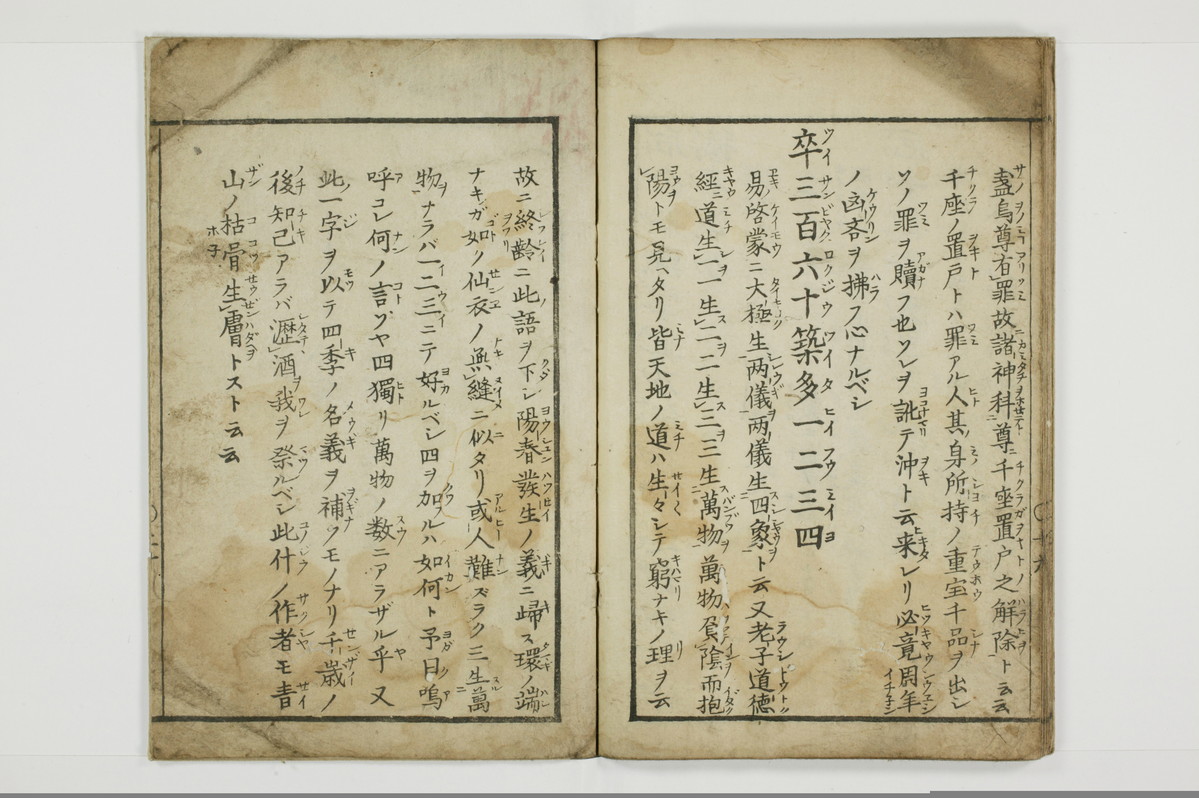 盞烏尊有罪故諸神科尊ニ千座置戸之解除ト云云
千座ノ置戸トハ罪アル人其ノ身所持ノ重宝千品ヲ出シ
ソノ罪ヲ贖フ也ソレヲ訛テ沖ト云来レリ必竟周年
ノ凶吝ヲ拂フ心ナルベシ
卒三百六十築多一二三四
易啓蒙ニ大極生両儀両儀生四象ト云又老子道徳
經ニ道生一一生二二生三三生萬物萬物負陰而抱
陽トモ見ヘタリ皆天地ノ道ハ生々シテ窮ナキノ理ヲ云
故ニ終齢ニ此語ヲ下シ陽春發生ノ義ニ歸ス環ノ端
ナキガ如ク仙衣ノ無縫ニ似タリ或人難ズラク三生萬
物ナラバ一二三ニテ好ルベシ四ヲ加ルハ如何ト予曰嗚
呼コレ何ノ言ゾヤ四獨リ萬物ノ数ニアラザル乎又
此一字ヲ以テ四季ノ名義ヲ補クモノナリ千歳ノ
後知己アラバ瀝酒我ヲ祭ルベシ此什ノ作者モ青
山ノ枯骨生膚トスト云云